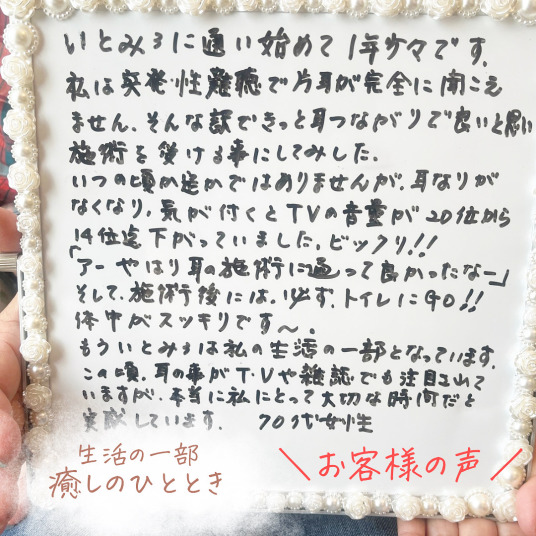 いとみみに通い始めて1年少々です。
私は突発性難聴で片耳が完全に聞こえ
ません。そんな訳できっと耳つながりで良いと思い
施術を受ける事にしてみました。
いつの頃か定かではありませんが、耳なりが
なくなり、気が付くとTVの音量が20位から
14位迄下がっていました。ビックリ!!
「アーやはり耳の施術に通って良かったなー」
そして、施術後には、必ず、トイレにGO!!
体中がスッキリです〜。
もういとみみは私の生活の一部となっています。
この頃、耳の事がT.Vや雑誌でも注目されて
いますが、本当に私にとって大切な時間だと
実感しています。 70代女性
生活の一部
癒しのひととき
\お客様の声/